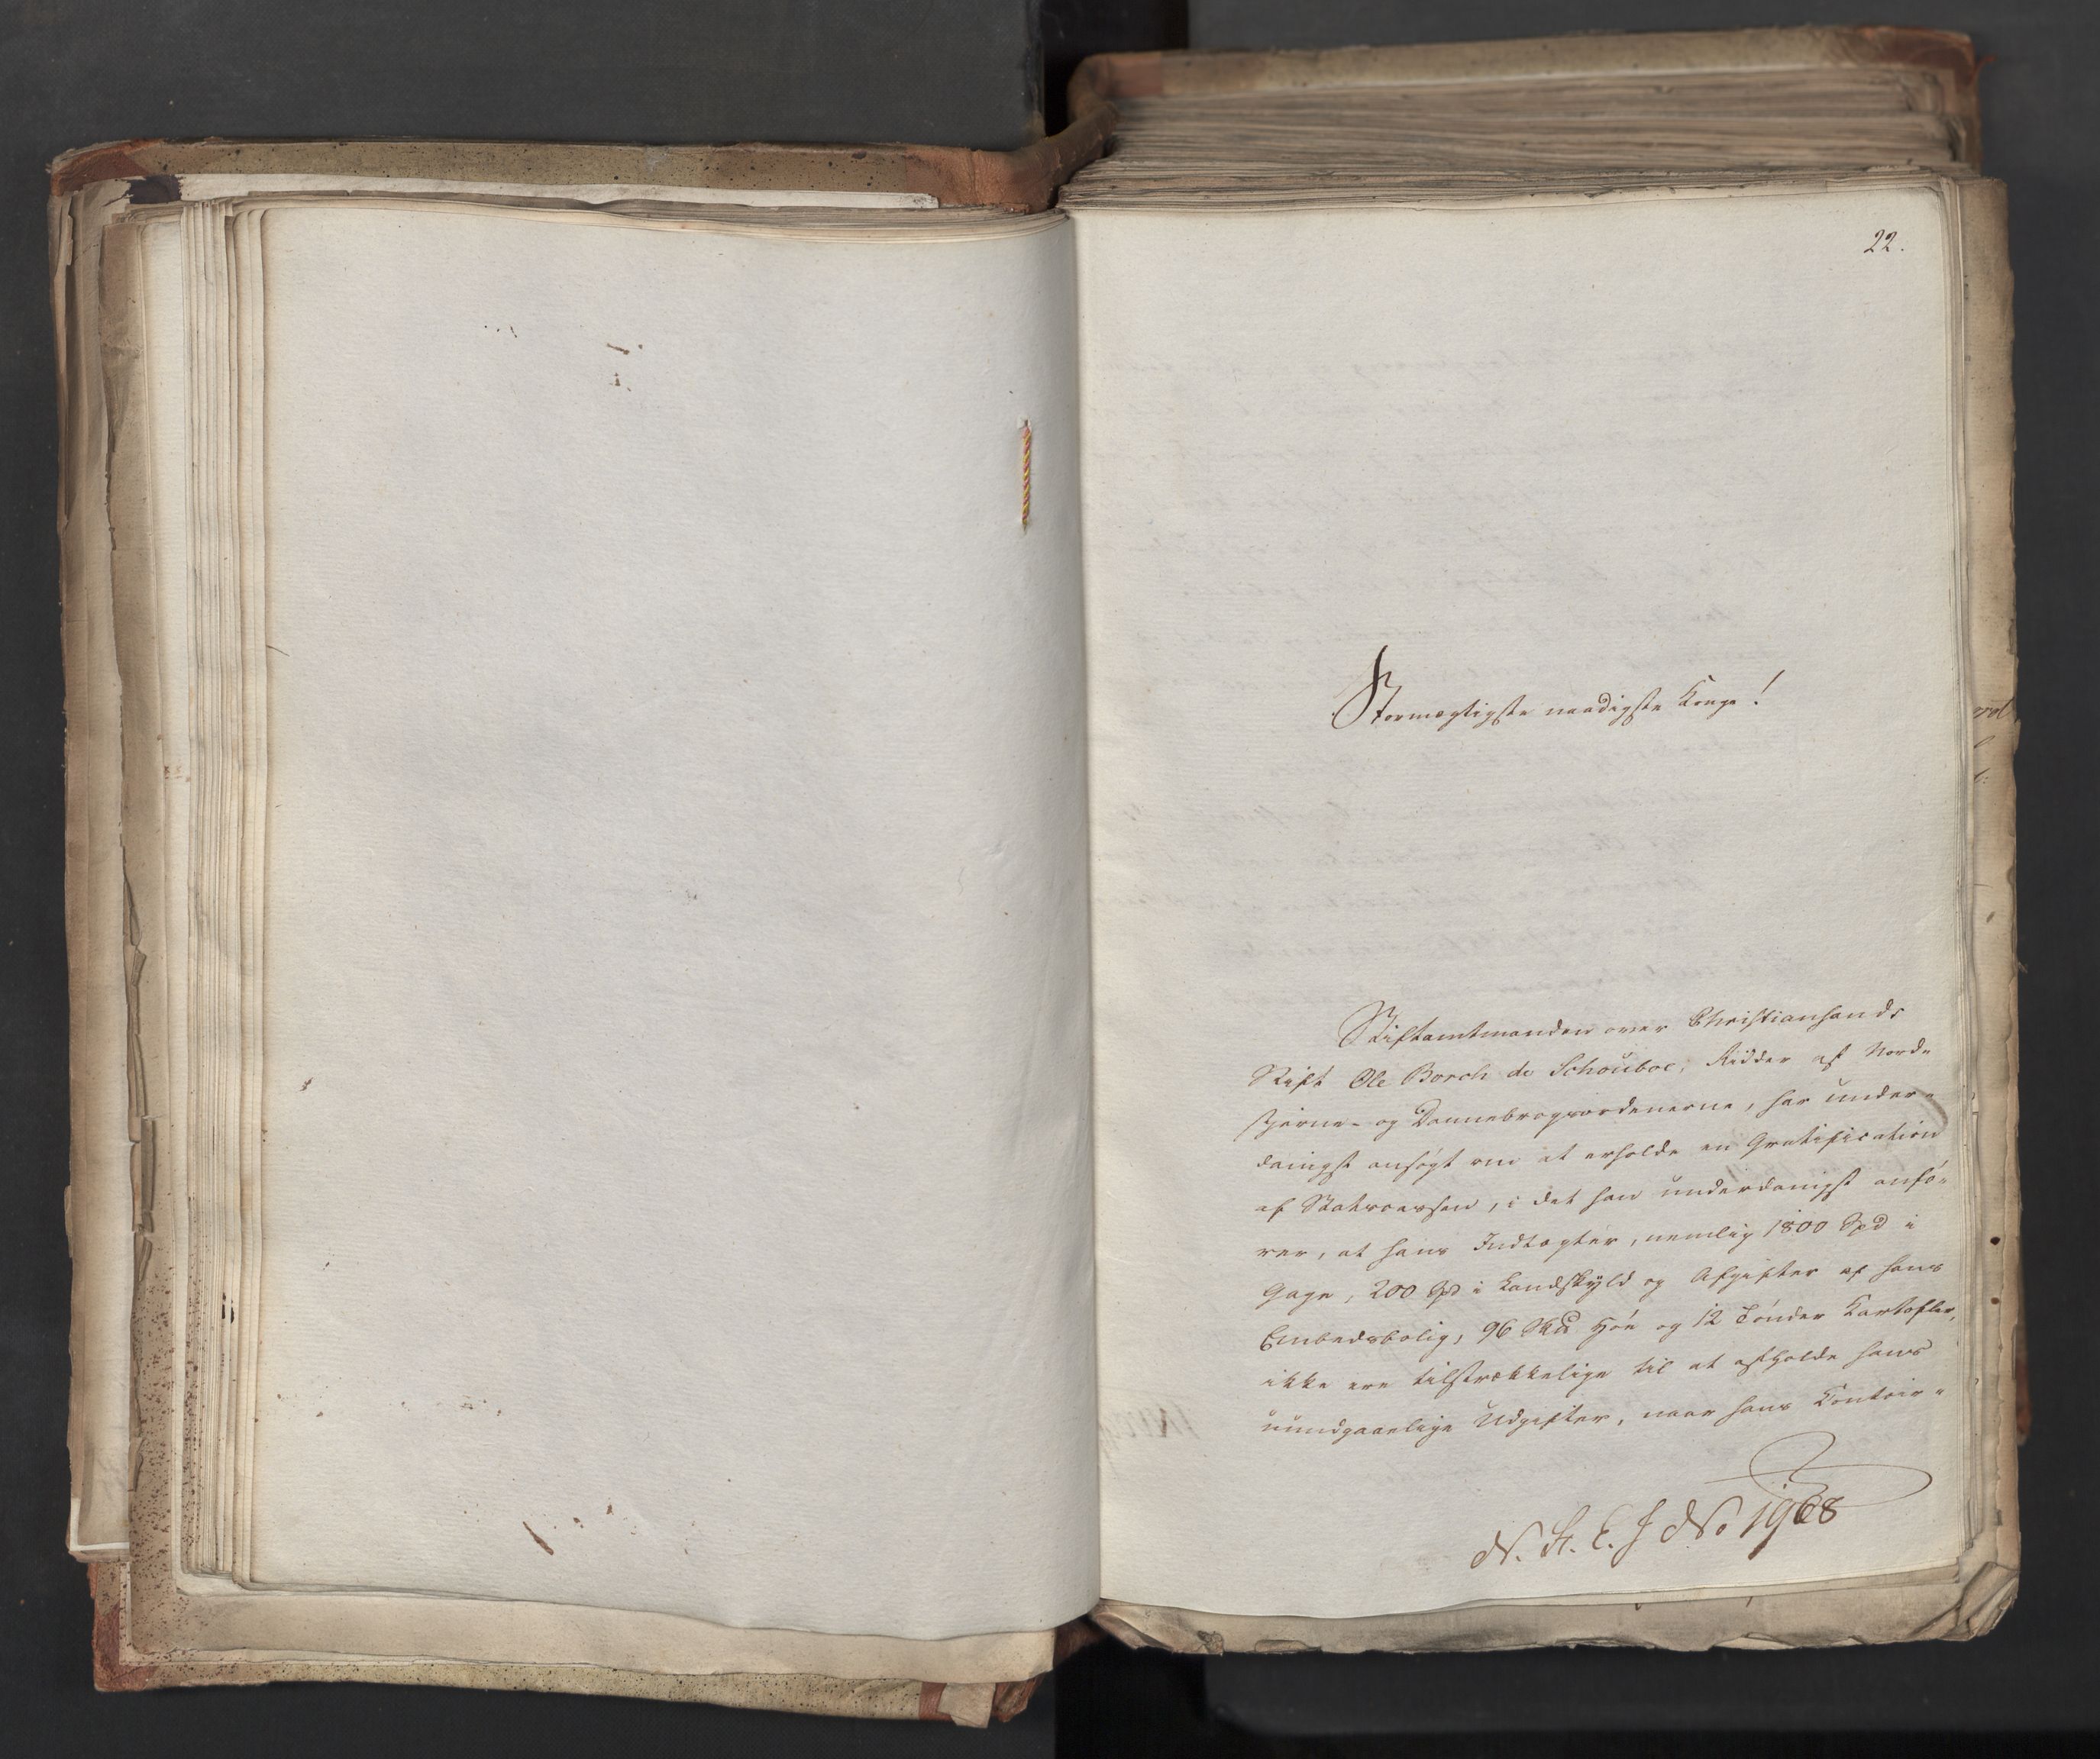 22.
Stormægtigste naadigste Konge!
Stiftamtmanden over Christiansands
Stift Ole Borch de Schouboe, Ridder af Nord-
stjerne- og Dannebrogsordenerne, har under-
danigst ansøgt om at erholde en Gratification
af Statscassen, i det han underdanigst anfø-
rer, at hans Indtægter, nemlig 1800 Spd i
Gage, 200 Spd i Landskyld og Afgifter af hans
Embedsbolig, 96 Skd Høe og 12 Tønder Kartofler,
ikke ere tilstrækkelige til at afholde hans
uundgaaelige Udgifter, naar hans Contoir-
N. St. E. J No 1968